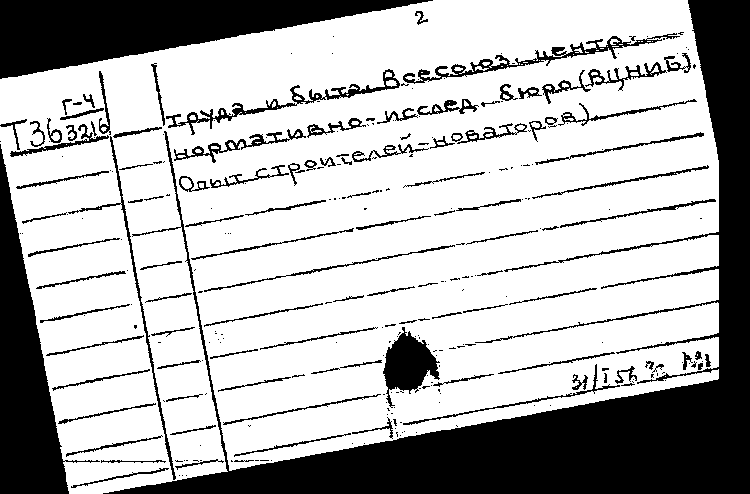 2
Г-4
Т36 3216
труда и быта. Всесоюз. центр.
нормативно-исслед. бюро (ВЦНИБ).
Опыт строителей-новаторов).
31/I 56